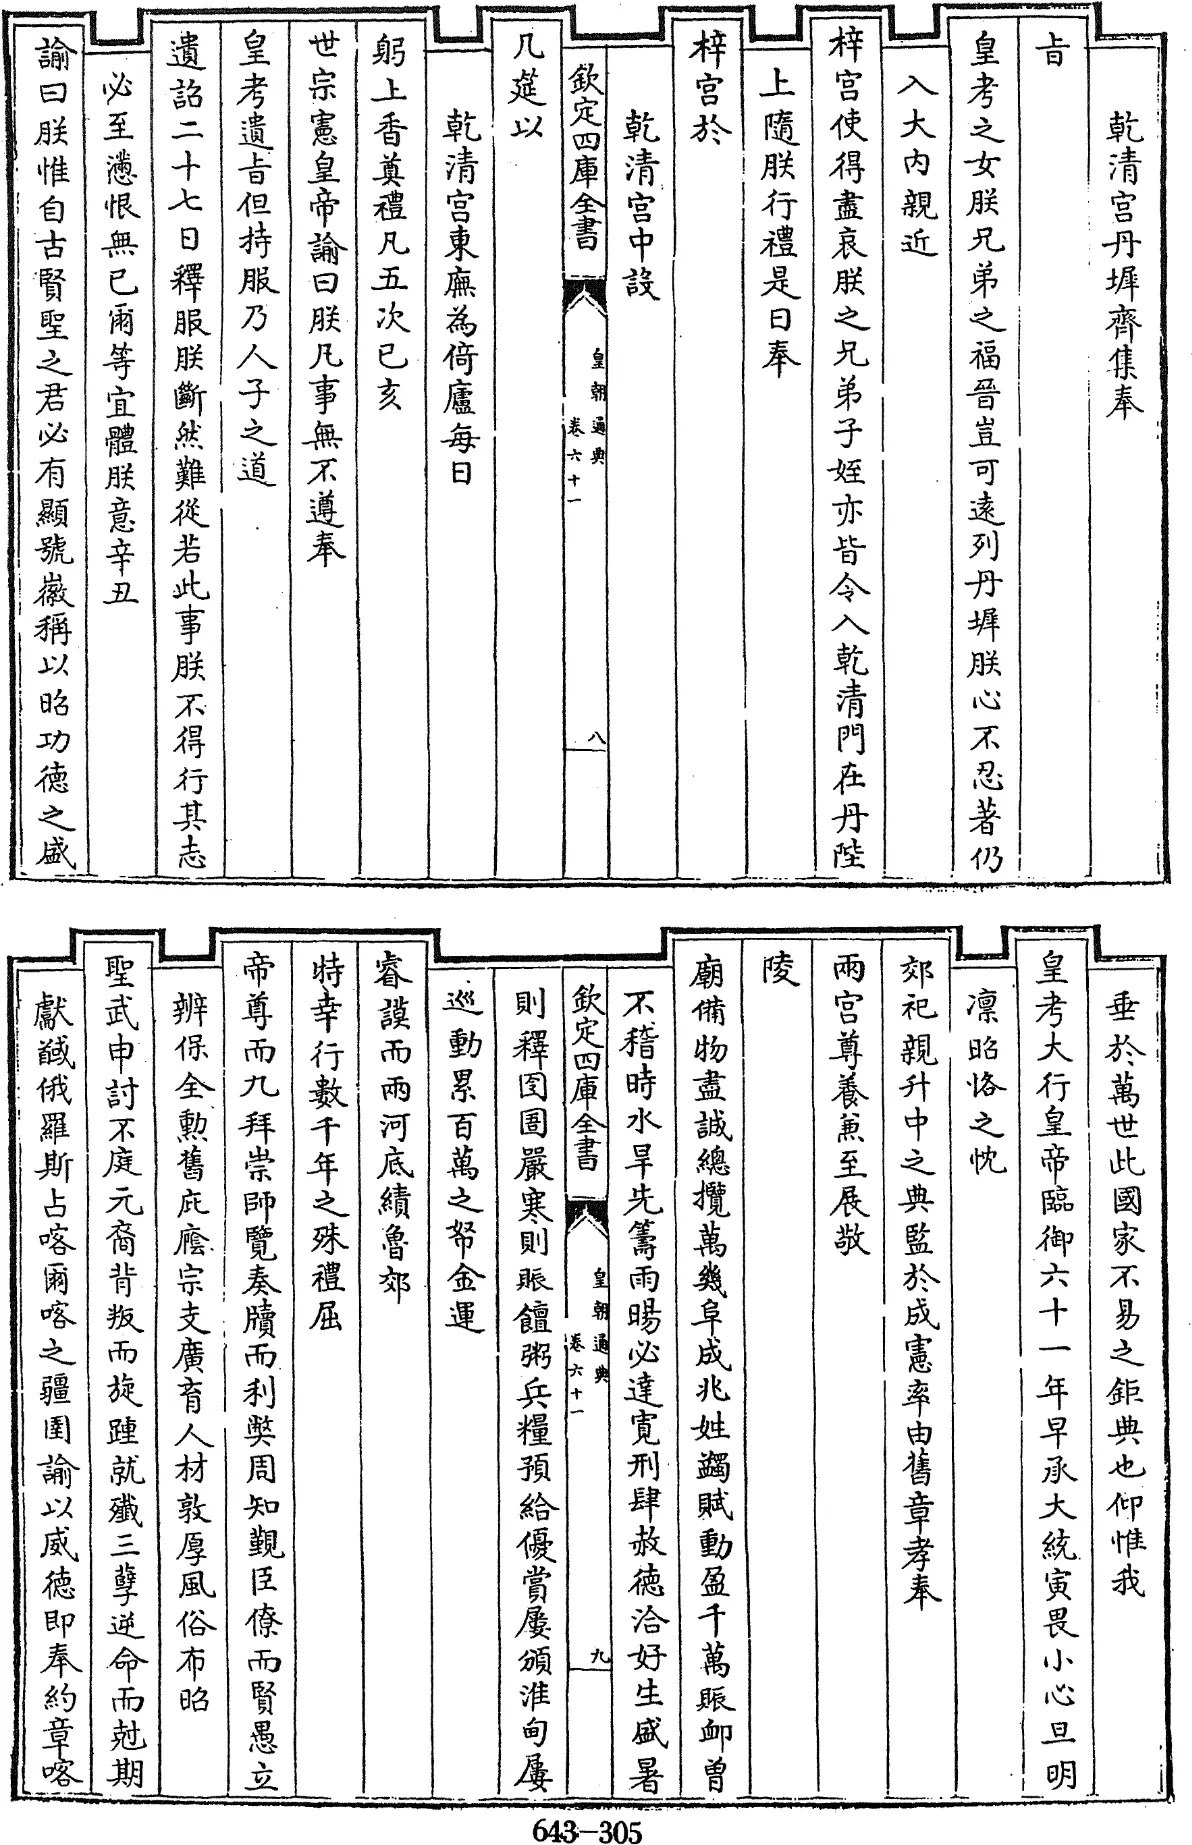 乾清宮丹墀齊集奉
旨
皇考之女朕兄弟之福晉豈可遠列丹墀朕心不忍著仍
入大内親近
梓宮使得盡哀朕之兄弟子姪亦皆令入乾清門在丹陛
上隨朕行禮是日奉
梓宮於
乾清宮中設
欽定四庫全書
皇朝通典
卷六十一
八
几筵以
乾清宮東廡為倚廬每日
躬上香奠禮凡五次已亥
世宗憲皇帝諭曰朕凡事無不遵奉
皇考遺旨但持服乃人子之道
遺詔二十七日釋服朕斷然難從若此事朕不得行其志
必至懣恨無已爾等宜體朕意辛丑
諭曰朕惟自古賢聖之君必有顯號徽稱以昭功德之盛
垂於萬世此國家不易之鉅典也仰惟我
皇考大行皇帝臨御六十一年早承大統寅畏小心旦明
凛昭恪之忱
郊祀親升中之典監於成憲率由舊章孝奉
兩宮尊養兼至展敬
陵
廟備物盡誠總攬萬幾阜成兆姓蠲賦動盈千萬賑卹曽
不稽時水旱先籌雨暘必達寛刑肆赦徳洽好生盛暑
欽定四庫全書
皇朝通典
卷六十一
九
則釋囹圄嚴寒則賑饘粥兵糧預給優賞屢頒淮甸屢
巡動累百萬之帑金運
睿謨而兩河底績魯郊
特幸行數千年之殊禮屈
帝尊而九拜崇師覽奏牘而利弊周知覲臣僚而賢愚立
辨保全勲舊庇廕宗支廣育人材敦厚風俗布昭
聖武申討不庭元裔背叛而旋踵就殲三孽逆命而尅期
獻馘俄羅斯占喀爾喀之疆圉諭以威徳即奉約章喀
643-305